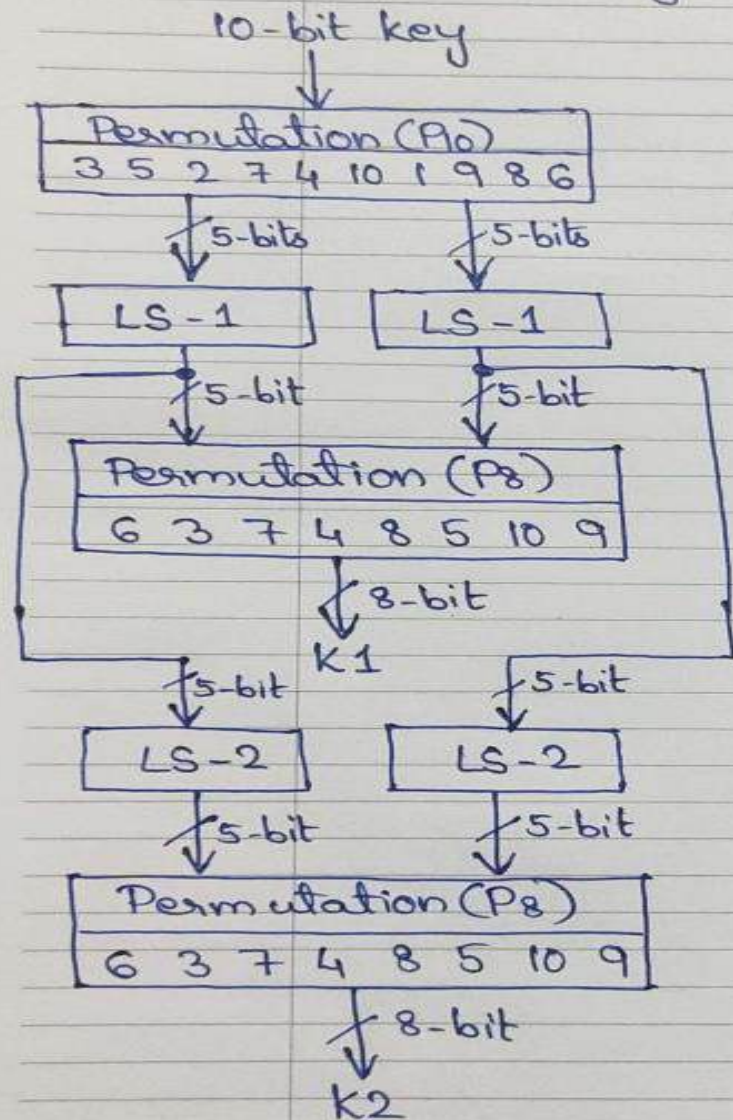 10-bit key
Permutation (P10)
3 5 2 7 4 10 1 9 8 6
5-bits 5-bits
LS-1 LS-1
5-bit 5-bit
Permutation (P8)
6 3 7 4 8 5 10 9
8-bit
K1
5-bit 5-bit
LS-2 LS-2
5-bit 5-bit
Permutation (P8)
6 3 7 4 8 5 10 9
8-bit
K2